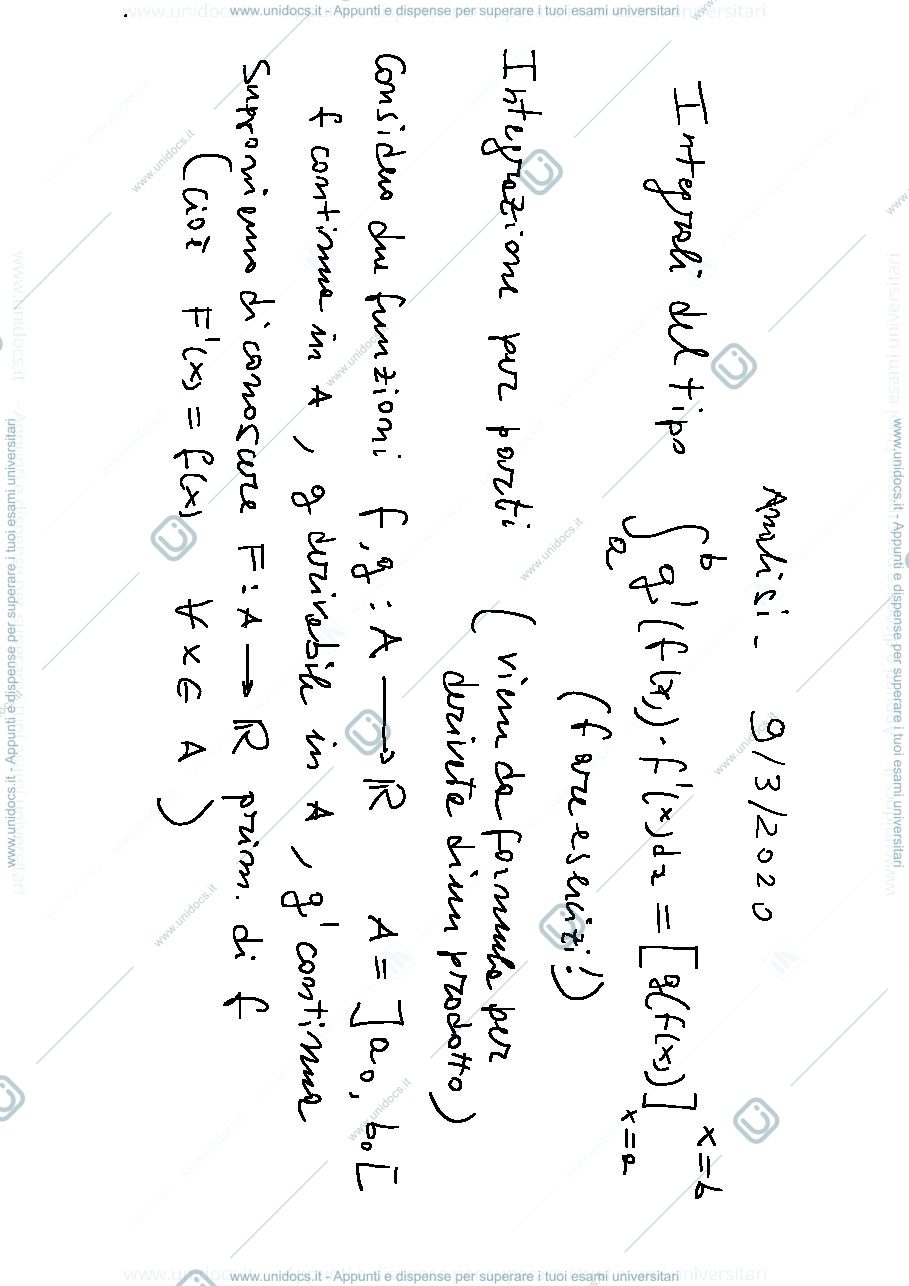 www.unidocs.it - Appunti e dispense per superare i tuoi esami universitari
Analisi - 9/3/2020
Integrali del tipo ∫_a^b g'(f(x))·f'(x)dx = [g(f(x))]_{x=a}^{x=b}
(fare esercizi!)
Integrazione per parti (viene da formula per
derivata di un prodotto)
Considero due funzioni f,g : A → ℝ A = ]a₀, b₀[
f continua in A, g derivabile in A, g' continua
Supponiamo di conoscere F: A → ℝ prim. di f
(cioè F'(x) = f(x) ∀ x ∈ A)
www.unidocs.it - Appunti e dispense per superare i tuoi esami universitari